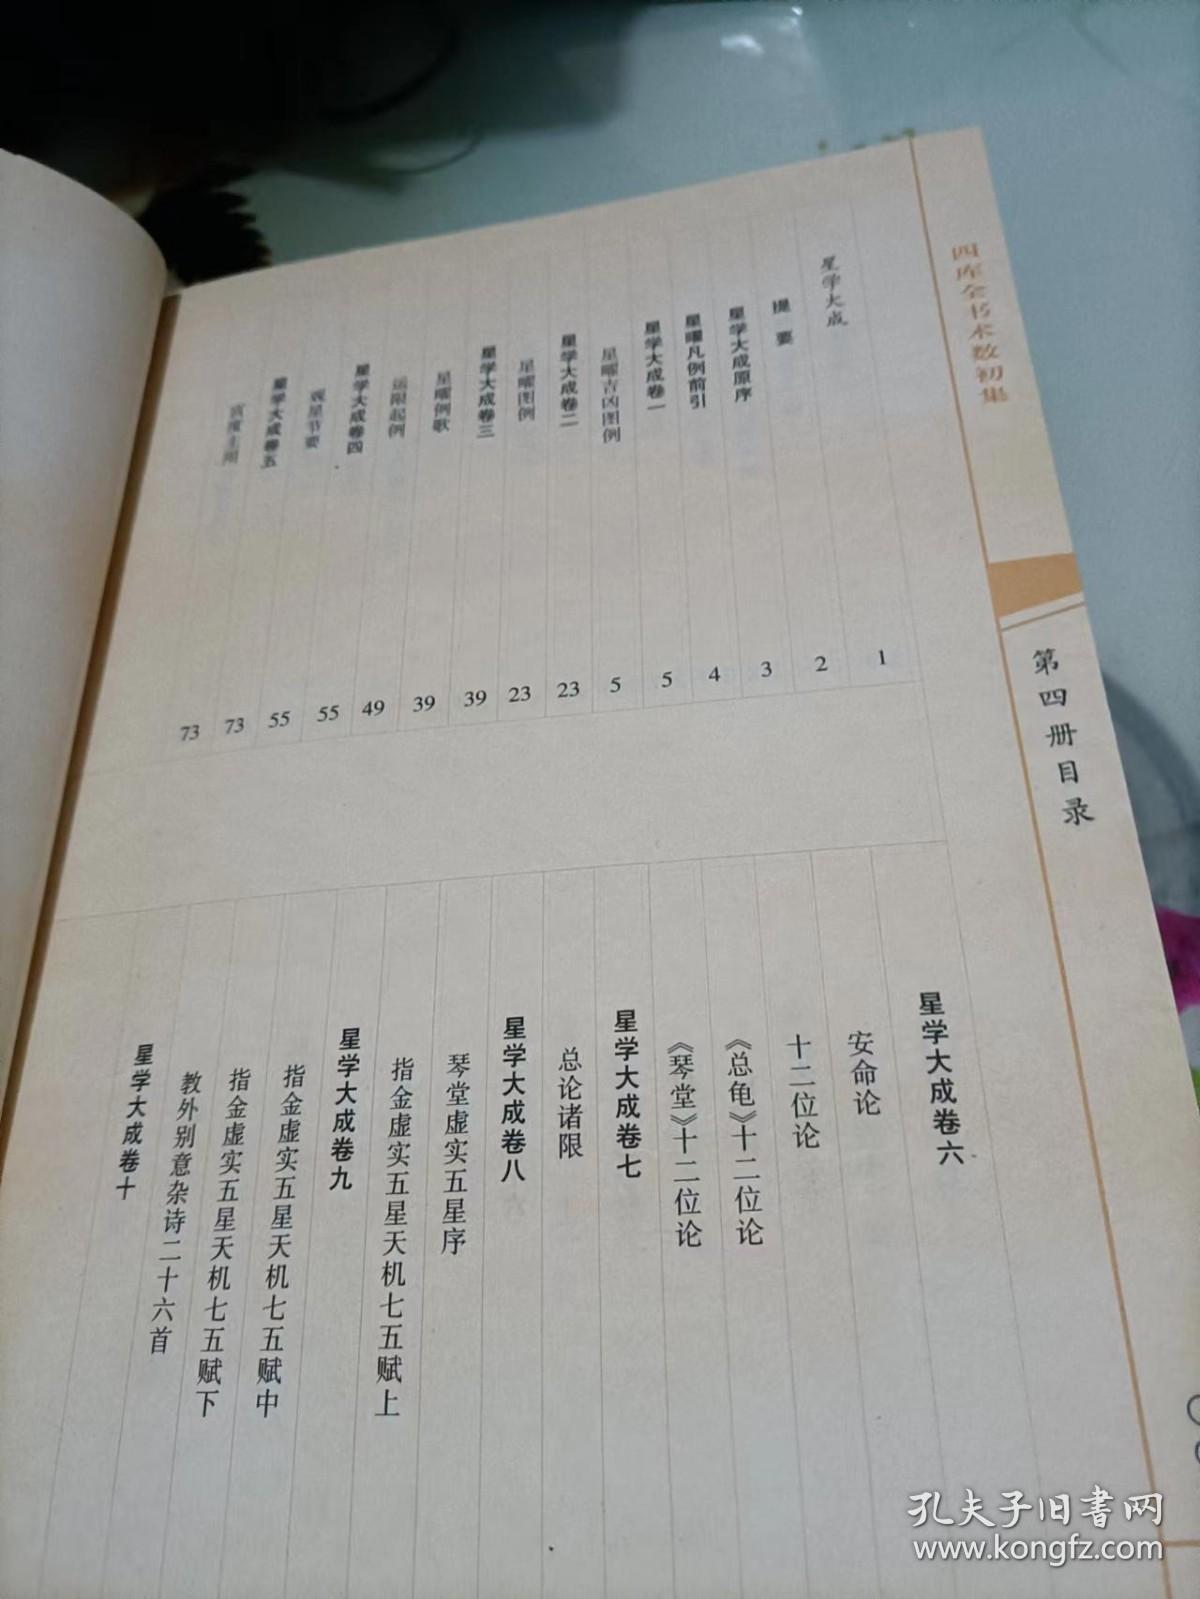 四库全书术数初集
第四册目录
星学大成 1
提要 2
星学大成原序 3
星曜凡例前引 4
星学大成卷一 5
星曜吉凶图例 5
星学大成卷二 23
星曜图例 23
星学大成卷三 39
星曜例歌 39
运限起例 49
星学大成卷四 55
观星节要 55
星学大成卷五 73
宫度主用 73
星学大成卷六
安命论
十二位论
《总龟》十二位论
《琴堂》十二位论
星学大成卷七
总论诸限
星学大成卷八
琴堂虚实五星序
指金虚实五星天机七五赋上
星学大成卷九
指金虚实五星天机七五赋中
指金虚实五星天机七五赋下
教外别意杂诗二十六首
星学大成卷十
孔夫子旧书网
www.kongfz.com